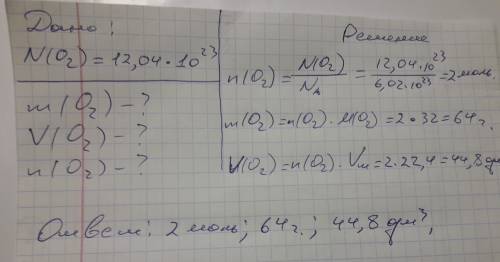 Дано:
N(O₂) = 12,04 · 10²³
m(O₂) – ?
V(O₂) – ?
n(O₂) – ?
Решение
n(O₂) = N(O₂)/Nₐ = 12,04 · 10²³/6,02 · 10²³ = 2 моль
m(O₂) = n(O₂) · M(O₂) = 2 · 32 = 64 г.
V(O₂) = n(O₂) · Vₘ = 2 · 22,4 = 44,8 дм³
Ответ: 2 моль; 64 г.; 44,8 дм³,